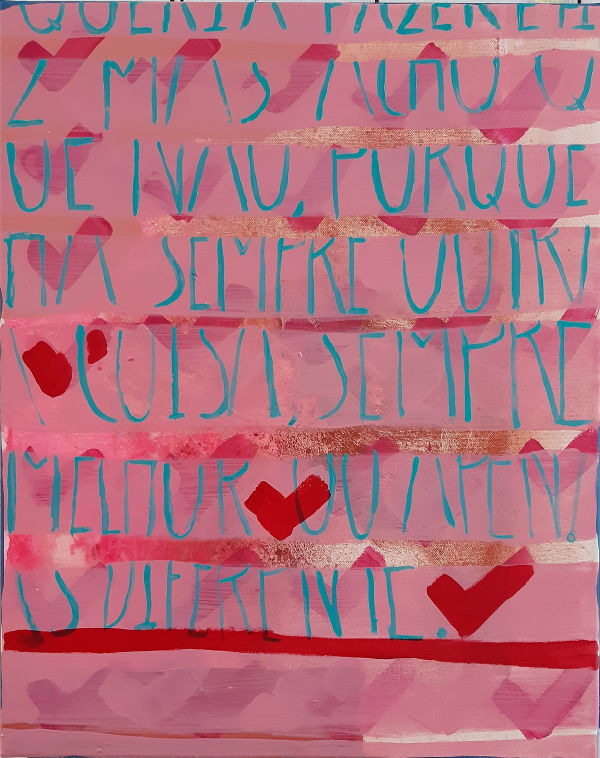 QUERIA FAZER E FI
Z MAS ACHO Q
UE NAO, PORQUE
HA SEMPRE OUTR
A COISA, SEMPRE
MELHOR OU APEN
AS DIFERENTE.